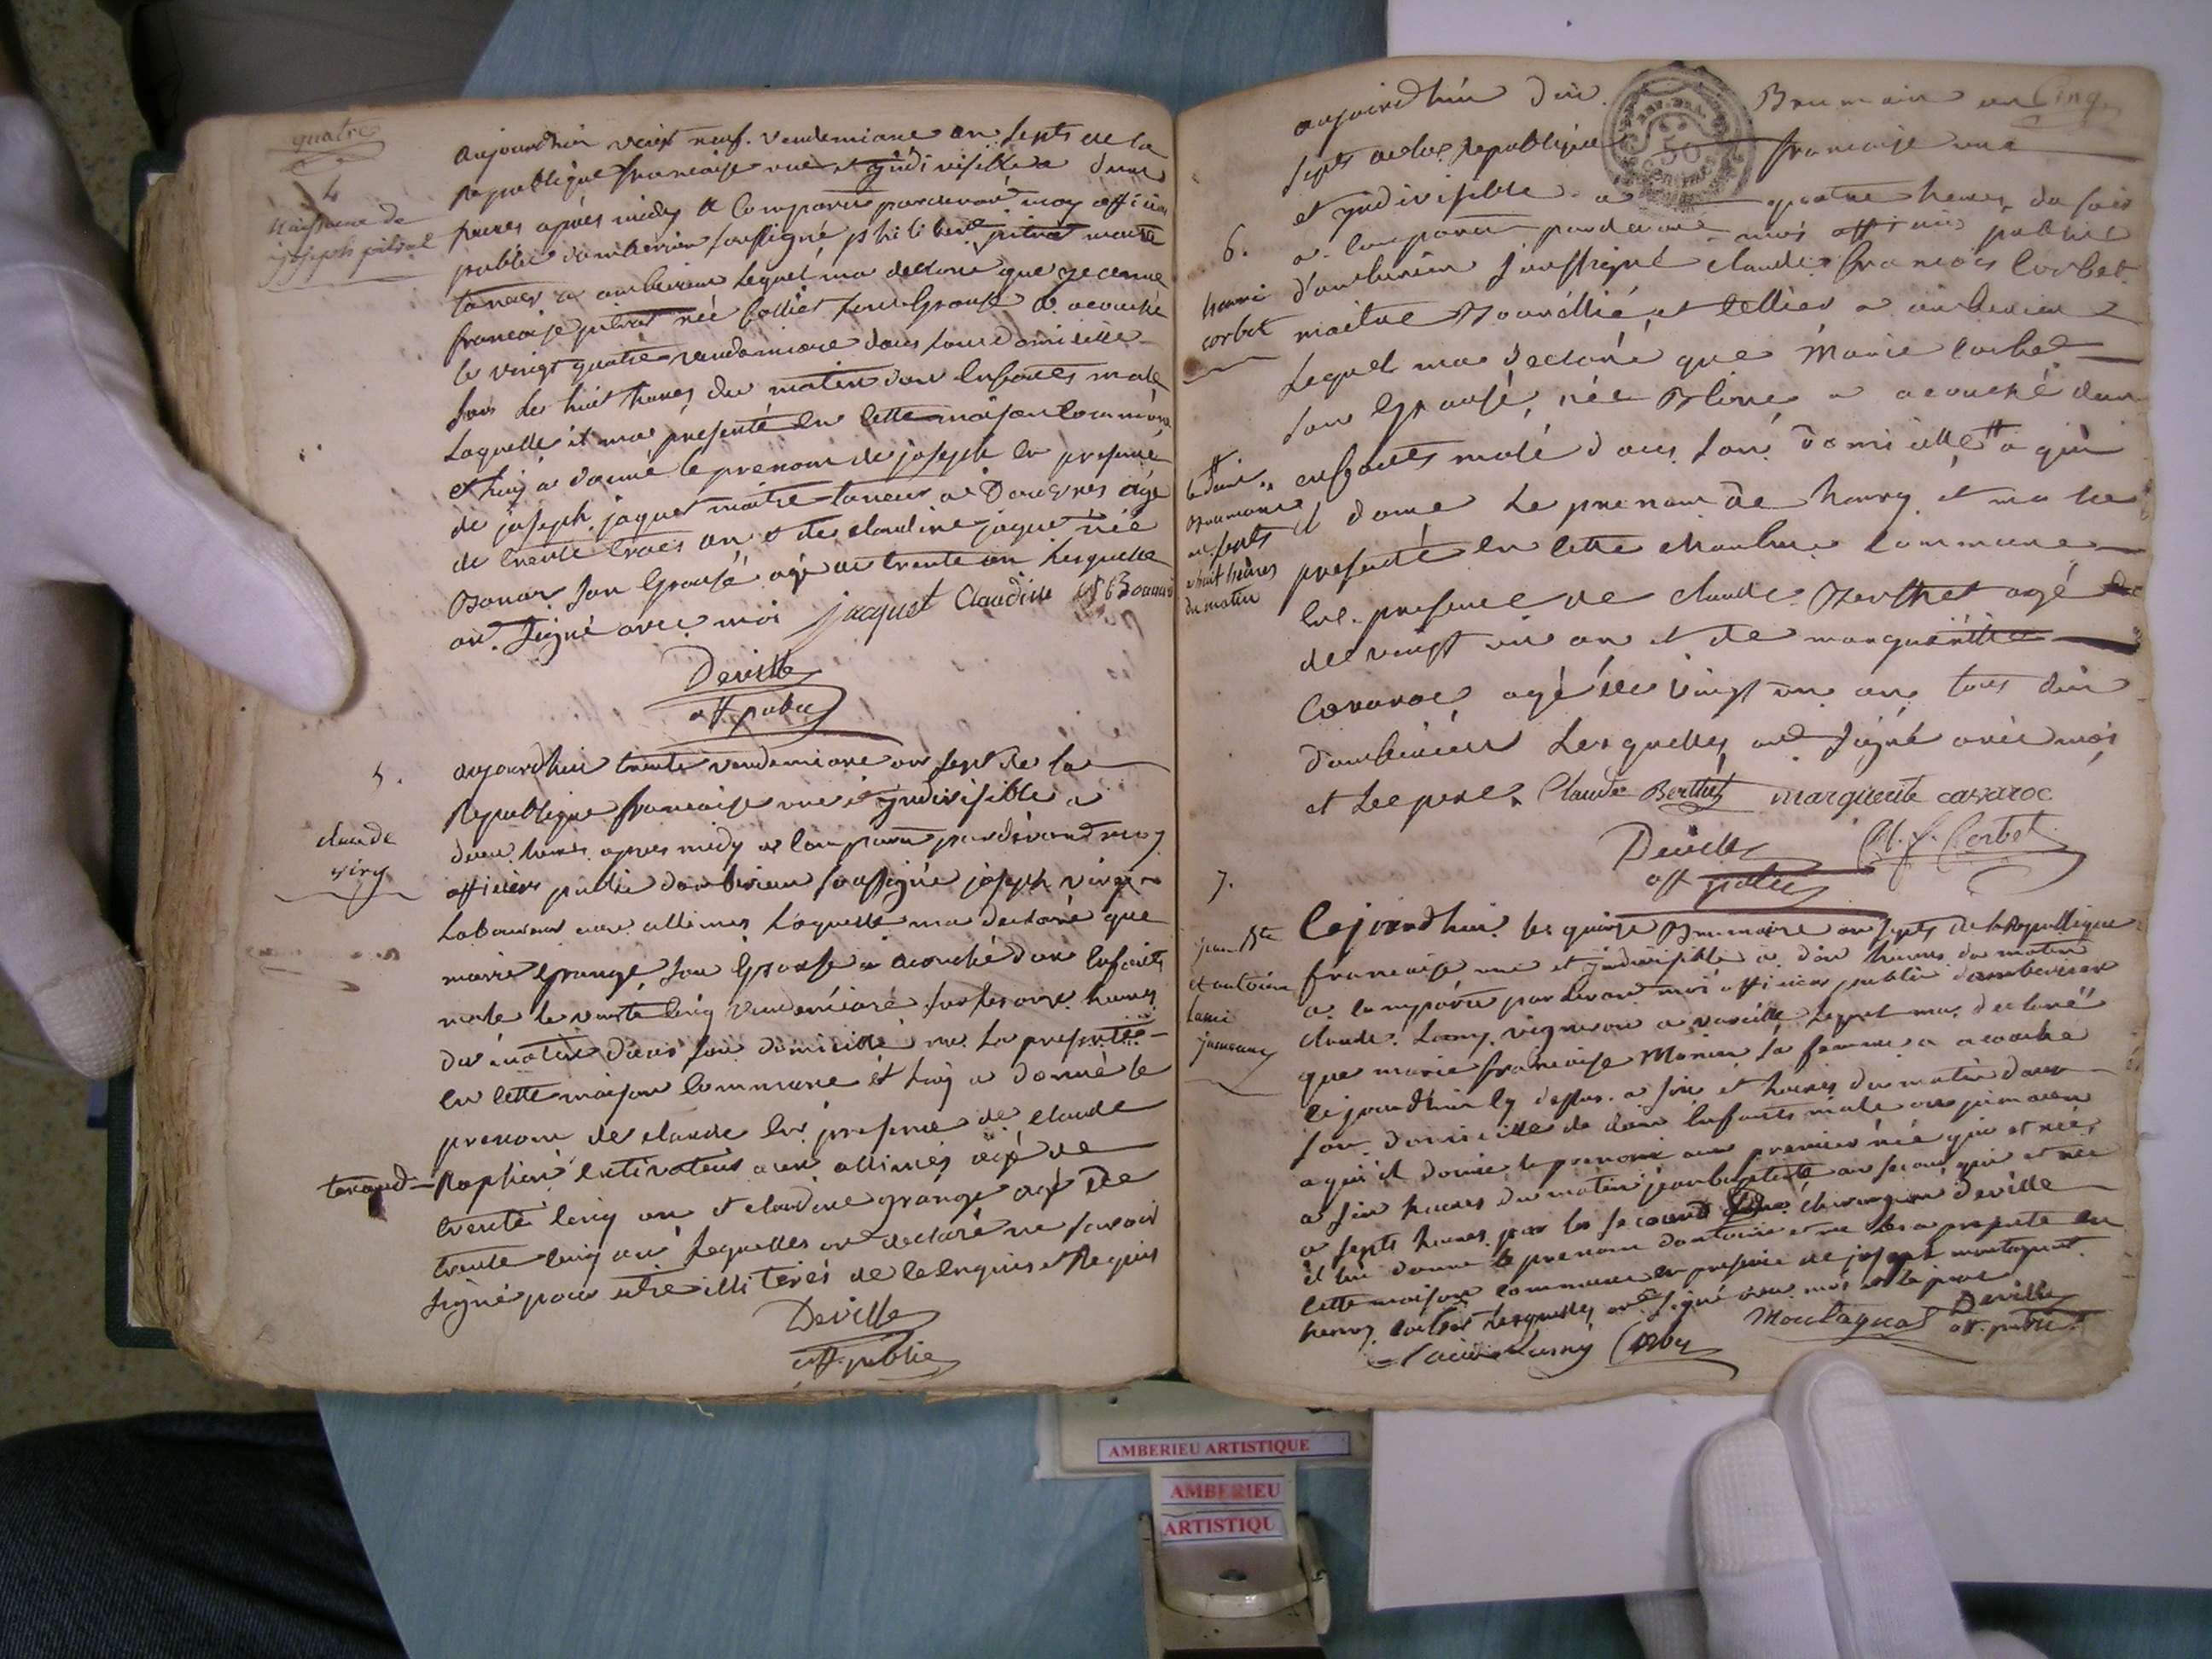 quatre
4
Naissance de
joseph pitrat
aujourdhui vingt neuf vendemiaire an septs de la
Republique francaise une et yndivisible a deux
heures apres midy a Comparu pardevant moy officier
public damberieu soussigné philibert pitrat maitre
taneur a amberieu Lequel ma declaré que
francaise pitrat née son Epouse a acouché
le vingt quatre vendemiaire dans son domicille
sur les huit heures du matin dun enfants male
Laquelle il ma presenté en cette maison commune
et luy a donné le prenom de joseph en presence
de joseph jaquet maitre taneur a agé
de trente trois an et de claudine jaquet née
Bonar son Epouse agé de trente an Lesquelles
on signé avec moi jacquet Claudine
Deville
off public
5.
claude
viry
aujourdhui trente vendemiaire an sept de la
Republique francaise une et yndivisible a
deux heures apres midy a comparu pardevant moy
officier public damberieu soussigné joseph viry
Laboureur aux allimes Laquelle ma declaré que
marie grange son Epouse a acouché dun enfants
male le vente cinq vendemiaire sur les onze heures
du matin dans son domicille me la presenté
en cette maison commune et luy a donné le
prenom de claude en presence de claude
tenand cultivateur aux allimes agé de
trente cinq an et claudine grange agé de
trente cinq an Lesquelles on declaré ne savoir
signé pour etre illiterés de ce enquis et Requis
Deville
off public
Cinq
aujourdhui dix Brumaire an
septs de la Republique francaise une
et yndivisible a quatre heures du soir
6.
henri
corbet
a comparu pardevant moi officier public
d'amberieu soussigné claude francois Corbet
maitre Bourellié et cellier a amberieu
Lequel ma declaré que Marie corbet
son Epousé, née a acouché dun
enfants male dans son domicille a qui
Brumaire
an septs
a huit heures
du matin
il donne le prenom de henry et ma le
presenté en cette chambre commune
en presence de claude Berthet agé de
de vingt un an et de margueritte
Cavaroc agé de vingt un an tous deux
d'amberieu Lesquelles ont signé avec moi
et le pere Claude Berthet marguerite cavaroc
Deville Cl. f. Corbet
off public
7.
jean Bte
et antoine
Lami
jumeaux
Cejourdhui le quinze Brumaire an septs de la Republique
francaise une et yndivisible a dix heures du matin
a comparu pardevant moi officier public damberieu
claude Lamy vigneron a vareille Lequel ma declaré
que marie francoise Monin sa femme a acouché
cejourdhui cy dessus a six et heures du matin dans
son domicille de deux enfants male
a qui il donne le prenom au premier né qui est né
a six heures du matin jean baptiste au second qui est né
a septs heures par les secours du chirurgien deville
il lui donne le prenom dantoine et me les a presenté en
cette maison commune en presence de joseph montagnat
henry corbet Lesquelles ont signé avec moi et le pere
Lamy Corbet Montagnat Deville
off. public
AMBERIEU ARTISTIQUE
AMBERIEU
ARTISTIQU